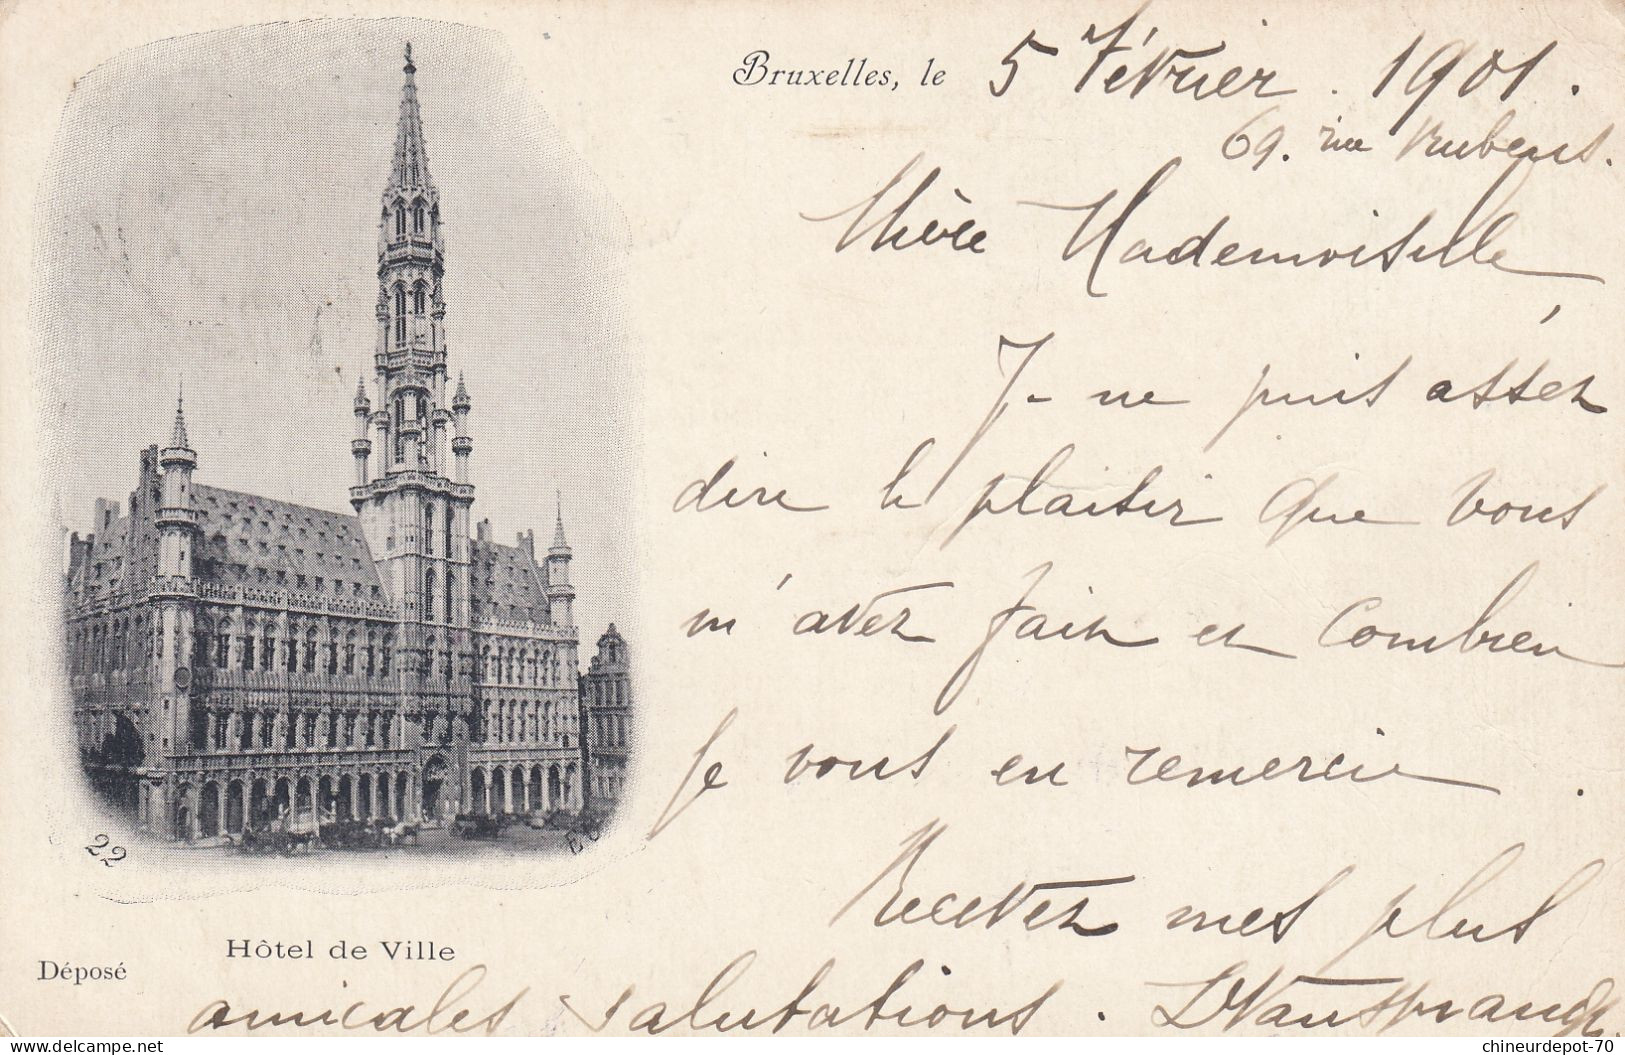 Bruxelles, le 5 Février . 1901 .
69. rue Rubens.
Chère Mademoiselle,
Je ne puis assez
dire le plaisir que vous
m'avez fait et combien
je vous en remercie .
Recevez mes plus
amicales salutations .
22
Hôtel de Ville
Déposé
chineurdepot-70